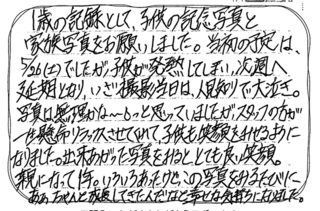 1歳の記録として、子供の記念写真と
家族写真をお願いしました。当初の予定は、
5/26(土)でしたが、子供が発熱してしまい、次週へ
延期となり、いざ撮影当日は、人見知りで大泣き。
写真は無理かな～もっと思っていましたが、スタッフの方が
一生懸命リラックスさせてくれて、子供も笑顔をみせるように
なりました。出来あがった写真をみるととても良い笑顔。
親になって1年。いろいろあったけど、この写真をみるたびに
あぁ、ちゃんと成長してきてんだなぁと幸せな気持ちになりました。